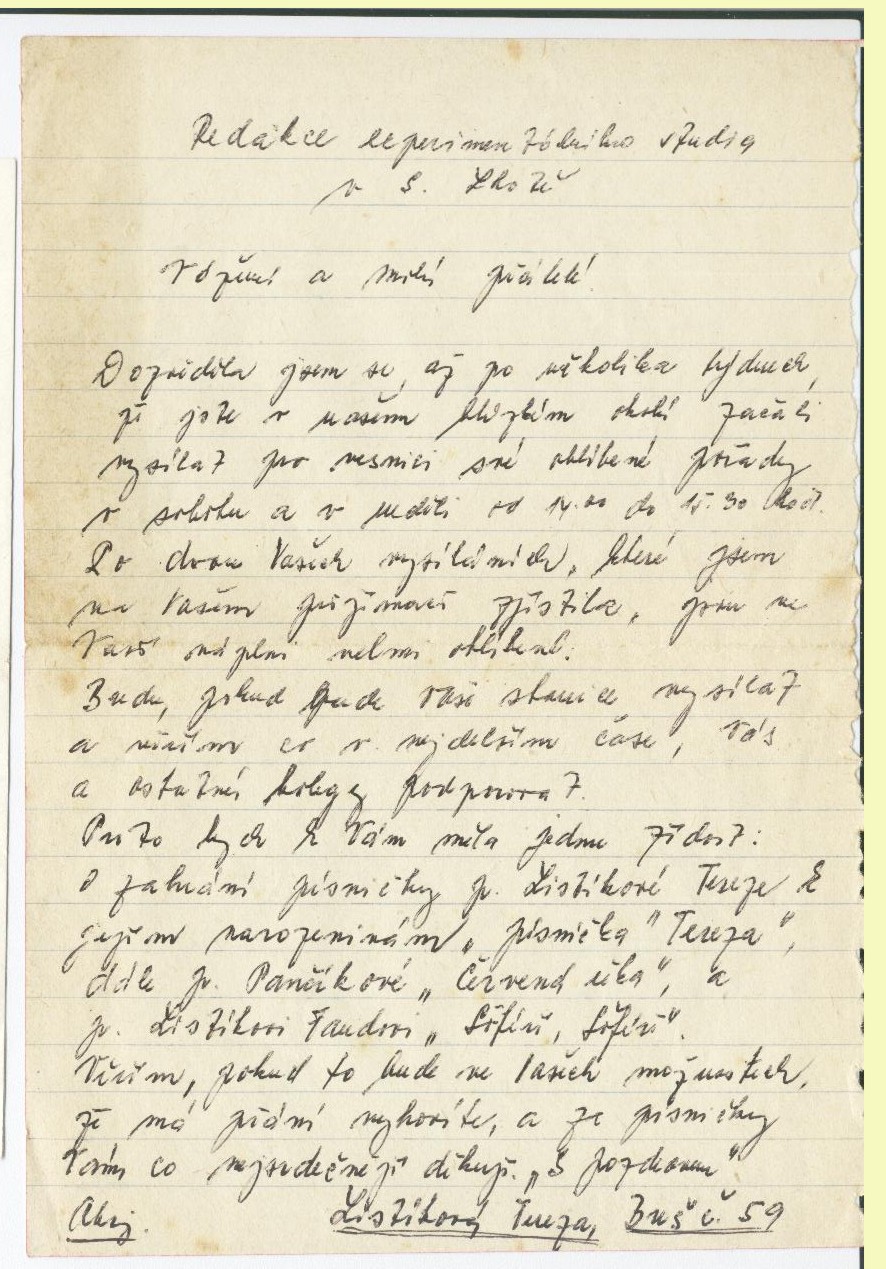 Redakce experimentálního studia
v S. Lhotě
Vážení a milí přátelé!
Dozvěděla jsem se, až po několika týdnech,
že jste v našem blízkém okolí začali
vysílat pro vesnici své oblíbené pořady
v sobotu a v neděli od 14.00 do 15.30 hod.
Po dvou Vašich vysíláních, které jsem
na Vašem přijímači zjistila, jsou ve
Vaší náplni velmi oblíbené.
Budu, pokud bude Vaše stanice vysílat
a věřím co v nejdelším čase, Vás
a ostatní kolegy podporovat.
Proto bych k Vám měla jednu žádost:
O zahrání písničky p. Listíkové Tereze k
jejím narozeninám „písnička "Tereza",
dále p. Pančíkové „Červená řeka", a
p. Listíkovi Fandovi „Šoféři, Šoféři".
Věřím, pokud to bude ve Vašich možnostech,
že má přání vyhovíte, a za písničky
Vám co nejsrdečněji děkuji. „S pozdravem"
Ahoj. Listíková Tereza, Buš č. 59